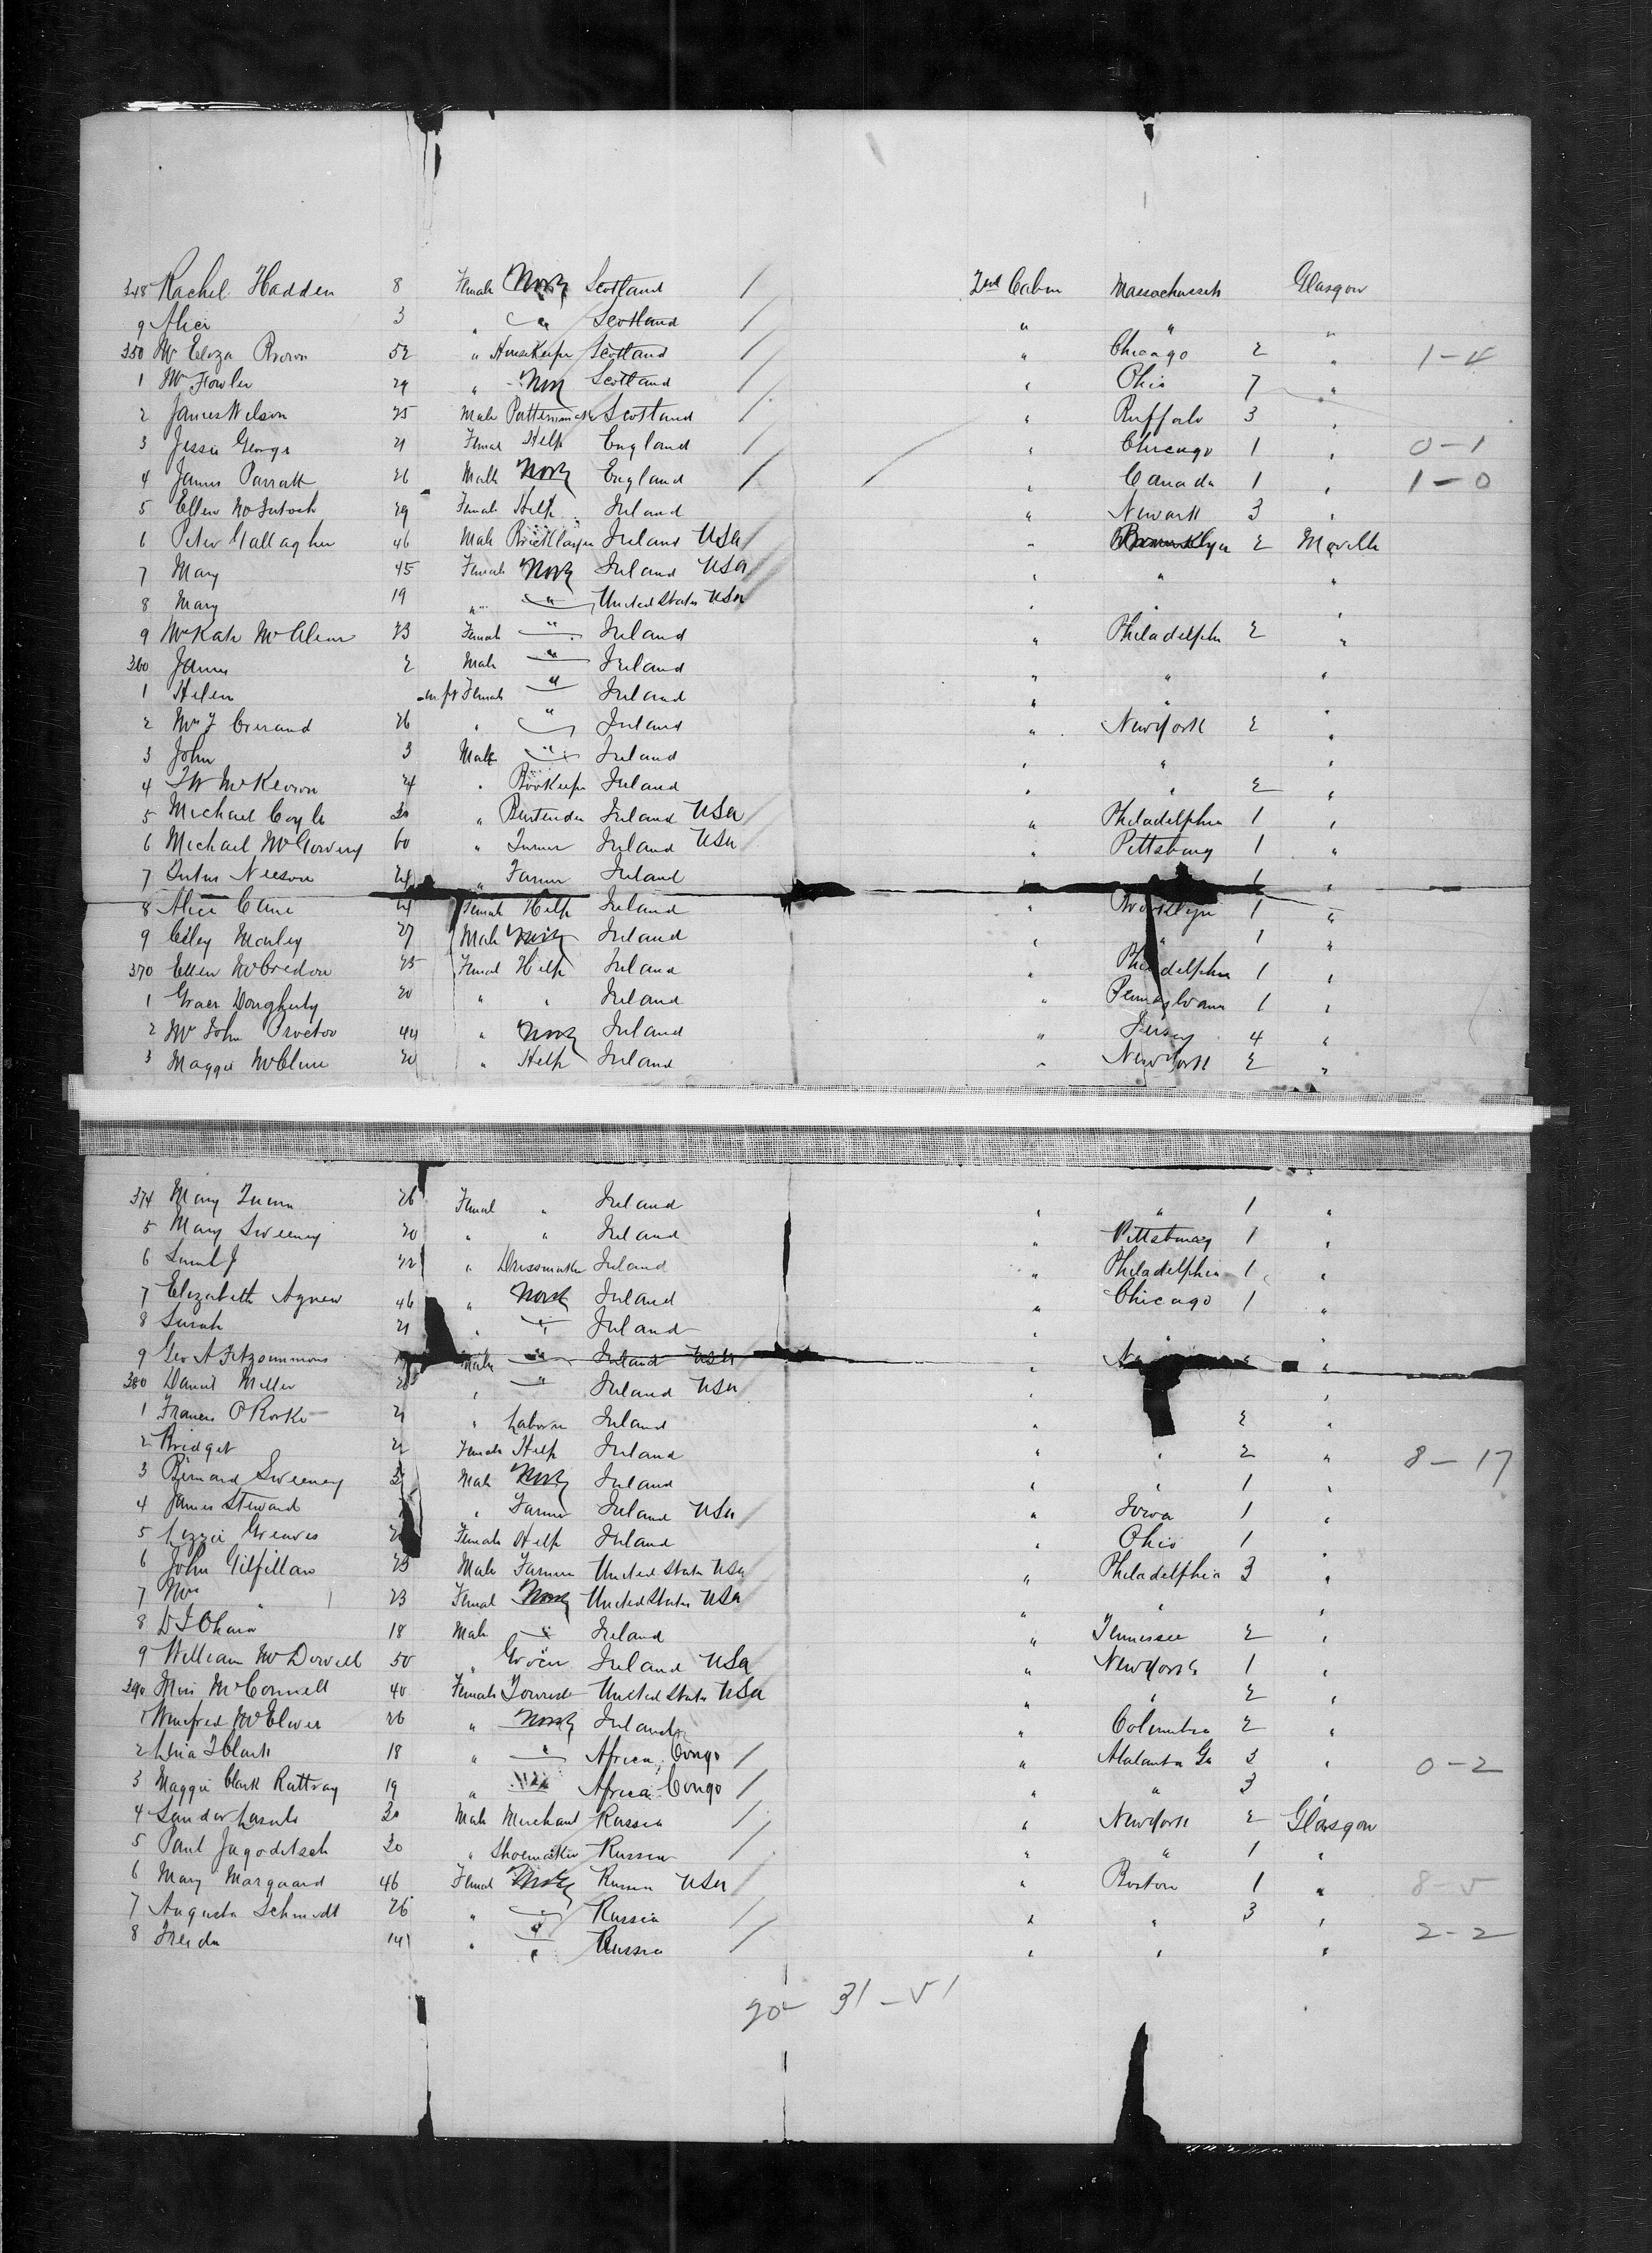 348 Rachel Hadden 8 Female None Scotland / 2nd Cabin Massachusets Glasgow
9 Alice 3 " " Scotland / " " "
350 Mrs Eliza Brown 52 " HouseKeeper Scotland / " Chicago 2 " 1-4
1 Mrs Fowler 29 " None Scotland / " Ohio 7 "
2 James Wilson 25 Male Patternmaker Scotland / " Buffalo 3 "
3 Jessie George 21 Femal Help England / " Chicago 1 " 0-1
4 James Parratt 26 Male None England / " Canada 1 " 1-0
5 Ellen McIntosh 29 Female Help Ireland " Newark 3 "
6 Peter Gallagher 46 Male Bricklayer Ireland USA " Brooklyn 2 Moville
7 Mary 45 Female None Ireland USA " " "
8 Mary 19 " " United States USA " " "
9 Mrs Kate McAleer 23 Female " Ireland " Philadelphi 2 "
360 James 2 Male " Ireland " " "
1 Helen inft Female " Ireland " " "
2 Mrs J 26 " " Ireland " New York 2 "
3 John 3 Male " Ireland " " "
4 McKeown 24 " BooKeeper Ireland " " 2 "
5 Michael Coyle 30 " Bartender Ireland USA " Philadelphia 1 "
6 Michael McGoverny 60 " Farmer Ireland USA " Pittsburg 1 "
7 Neeson 24 " Farmer Ireland 1 "
8 Alice Cane 24 Female Help Ireland " Brooklyn 1 "
9 Ciley Manley 27 Male None Ireland " " 1 "
370 Ellen McCredon 25 Femal Help Ireland " Philadelphia 1 "
1 Grace Dougherty 20 " " Ireland " Pennsylvania 1 "
2 Mrs John Proctor 44 " None Ireland " Jersey 4 "
3 Maggie McClure 20 " Help Ireland " New York 2 "
374 Mary Quinn 26 Femal " Ireland " " 1 "
5 Mary Sweeney 20 " " Ireland " Pittsburg 1 "
6 22 " Dressmaker Ireland " Philadelphia 1 "
7 Elizabeth Agnew 46 " None Ireland " Chicago 1 "
8 Sarah 21 " " Ireland " " "
9 Geo A Fitzsimmons Male " Ireland USA " "
380 Daniel Miller " " Ireland USA " "
1 Francis O'Rorke 21 " Laborer Ireland " 2 "
2 Bridget 22 Female Help Ireland " " 2 " 8-17
3 Bernard Sweeney Male None Ireland " " 1 "
4 James Steward " Farmer Ireland USA " Iowa 1 "
5 Lizzie Greaves Female Help Ireland " Ohio 1 "
6 John Gilfillan 25 Male Farmer United States USA " Philadelphia 3 "
7 Mrs " 23 Femal None United States USA " " "
8 D J Ohara 18 Male " Ireland " Tennessee 2 "
9 William McDowell 50 " Grocer Ireland USA " New York 1 "
390 Miss McConnell 40 Female Tourist United States USA " " 2 "
1 Winefred McElwee 26 " None Ireland " Columbia 2 "
2 Clark 18 " " Africa, Congo / " Atalanta Ga 3 " 0-2
3 Maggie Clark Rattray 19 " Africa Congo / " " 3 "
4 Sandor 30 Male Merchant Russia / " New York 2 Glasgow
5 Paul Jagoditsch 30 " Shoemaker Russia / " " 1 "
6 Mary Margaard 46 Femal None Russia USA / " Boston 1 " 8-5
7 Augusta Schmidt 26 " " Russia / " " 3 "
8 Freida 14 " " Russia / " " " 2-2
31-51